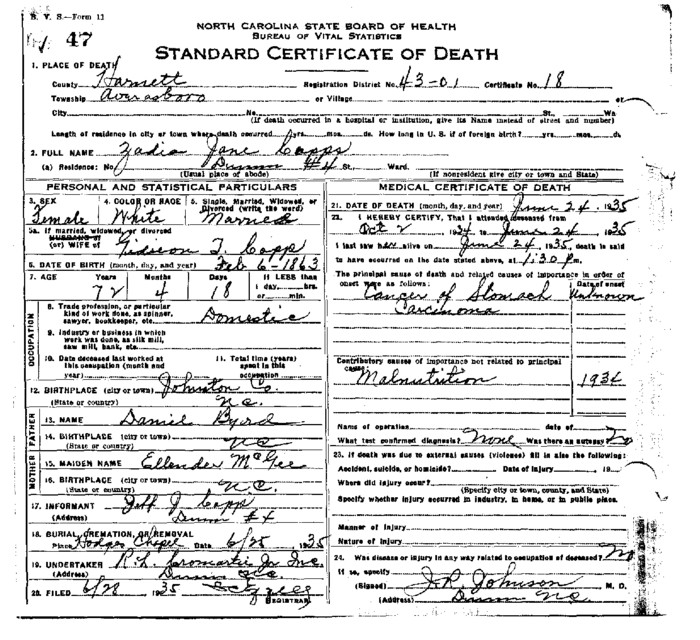 B. V. S.—Form 11
47
NORTH CAROLINA STATE BOARD OF HEALTH
BUREAU OF VITAL STATISTICS
STANDARD CERTIFICATE OF DEATH
1. PLACE OF DEATH
County Harnett Registration District No. 43-01 Certificate No. 18
Township Averasboro or Village or
City No. St. Wa
(If death occurred in a hospital or institution, give its Name instead of street and number)
Length of residence in city or town where death occurred yrs. mos. ds. How long in U. S. if of foreign birth? yrs. mos. ds
2. FULL NAME Zadia Jane Capps
(a) Residence: No. Dunn #4 St. Ward.
(Usual place of abode) (If nonresident give city or town and State)
PERSONAL AND STATISTICAL PARTICULARS
3. SEX 4. COLOR OR RACE 5. Single, Married, Widowed, or Divorced (write the word)
Female White Married
5a. If married, widowed, or divorced
HUSBAND of
(or) WIFE of Gideon T. Capp
6. DATE OF BIRTH (month, day, and year) Feb 6-1863
7. AGE Years Months Days If LESS than
1 day, hrs.
or min.
72 4 18
OCCUPATION
8. Trade profession, or particular
kind of work done, as spinner,
sawyer, bookkeeper, etc. Domestic
9. Industry or business in which
work was done, as silk mill,
saw mill, bank, etc.
10. Date deceased last worked at
this occupation (month and
year)
11. Total time (years)
spent in this
occupation
12. BIRTHPLACE (city or town) Johnston Co.
(State or country) N.C.
FATHER
13. NAME Daniel Byrd
14. BIRTHPLACE (city or town)
(State or country) NC
MOTHER
15. MAIDEN NAME Ellender McGee
16. BIRTHPLACE (city or town)
(State or country) N.C.
17. INFORMANT Jeff J Capp
(Address) Dunn #4
18. BURIAL, CREMATION, OR REMOVAL
Place Hodges Chapel Date 6/25 1935
19. UNDERTAKER R. L. Cromartie Jr Inc.
(Address) Dunn NC
20. FILED 6/28 1935
REGISTRAR
MEDICAL CERTIFICATE OF DEATH
21. DATE OF DEATH (month, day, and year) June 24, 1935
22. I HEREBY CERTIFY, That I attended deceased from
Oct 2 1934 to June 24, 1935
I last saw her alive on June 24, 1935, death is said
to have occurred on the date stated above, at 1:30 pm.
The principal cause of death and related causes of importance in order of
onset were as follows: Date of onset
Cancer of Stomach Unknown
Carcinoma
Contributory causes of importance not related to principal
cause:
Malnutrition 1934
Name of operation date of
What test confirmed diagnosis? None Was there an autopsy No
23. If death was due to external causes (violence) fill in also the following:
Accident, suicide, or homicide? Date of injury 19
Where did injury occur?
(Specify city or town, county, and State)
Specify whether injury occurred in industry, in home, or in public place.
Manner of injury
Nature of injury
24. Was disease or injury in any way related to occupation of deceased? No
If so, specify
(Signed) J. R. Johnson, M. D.
(Address) Dunn NC